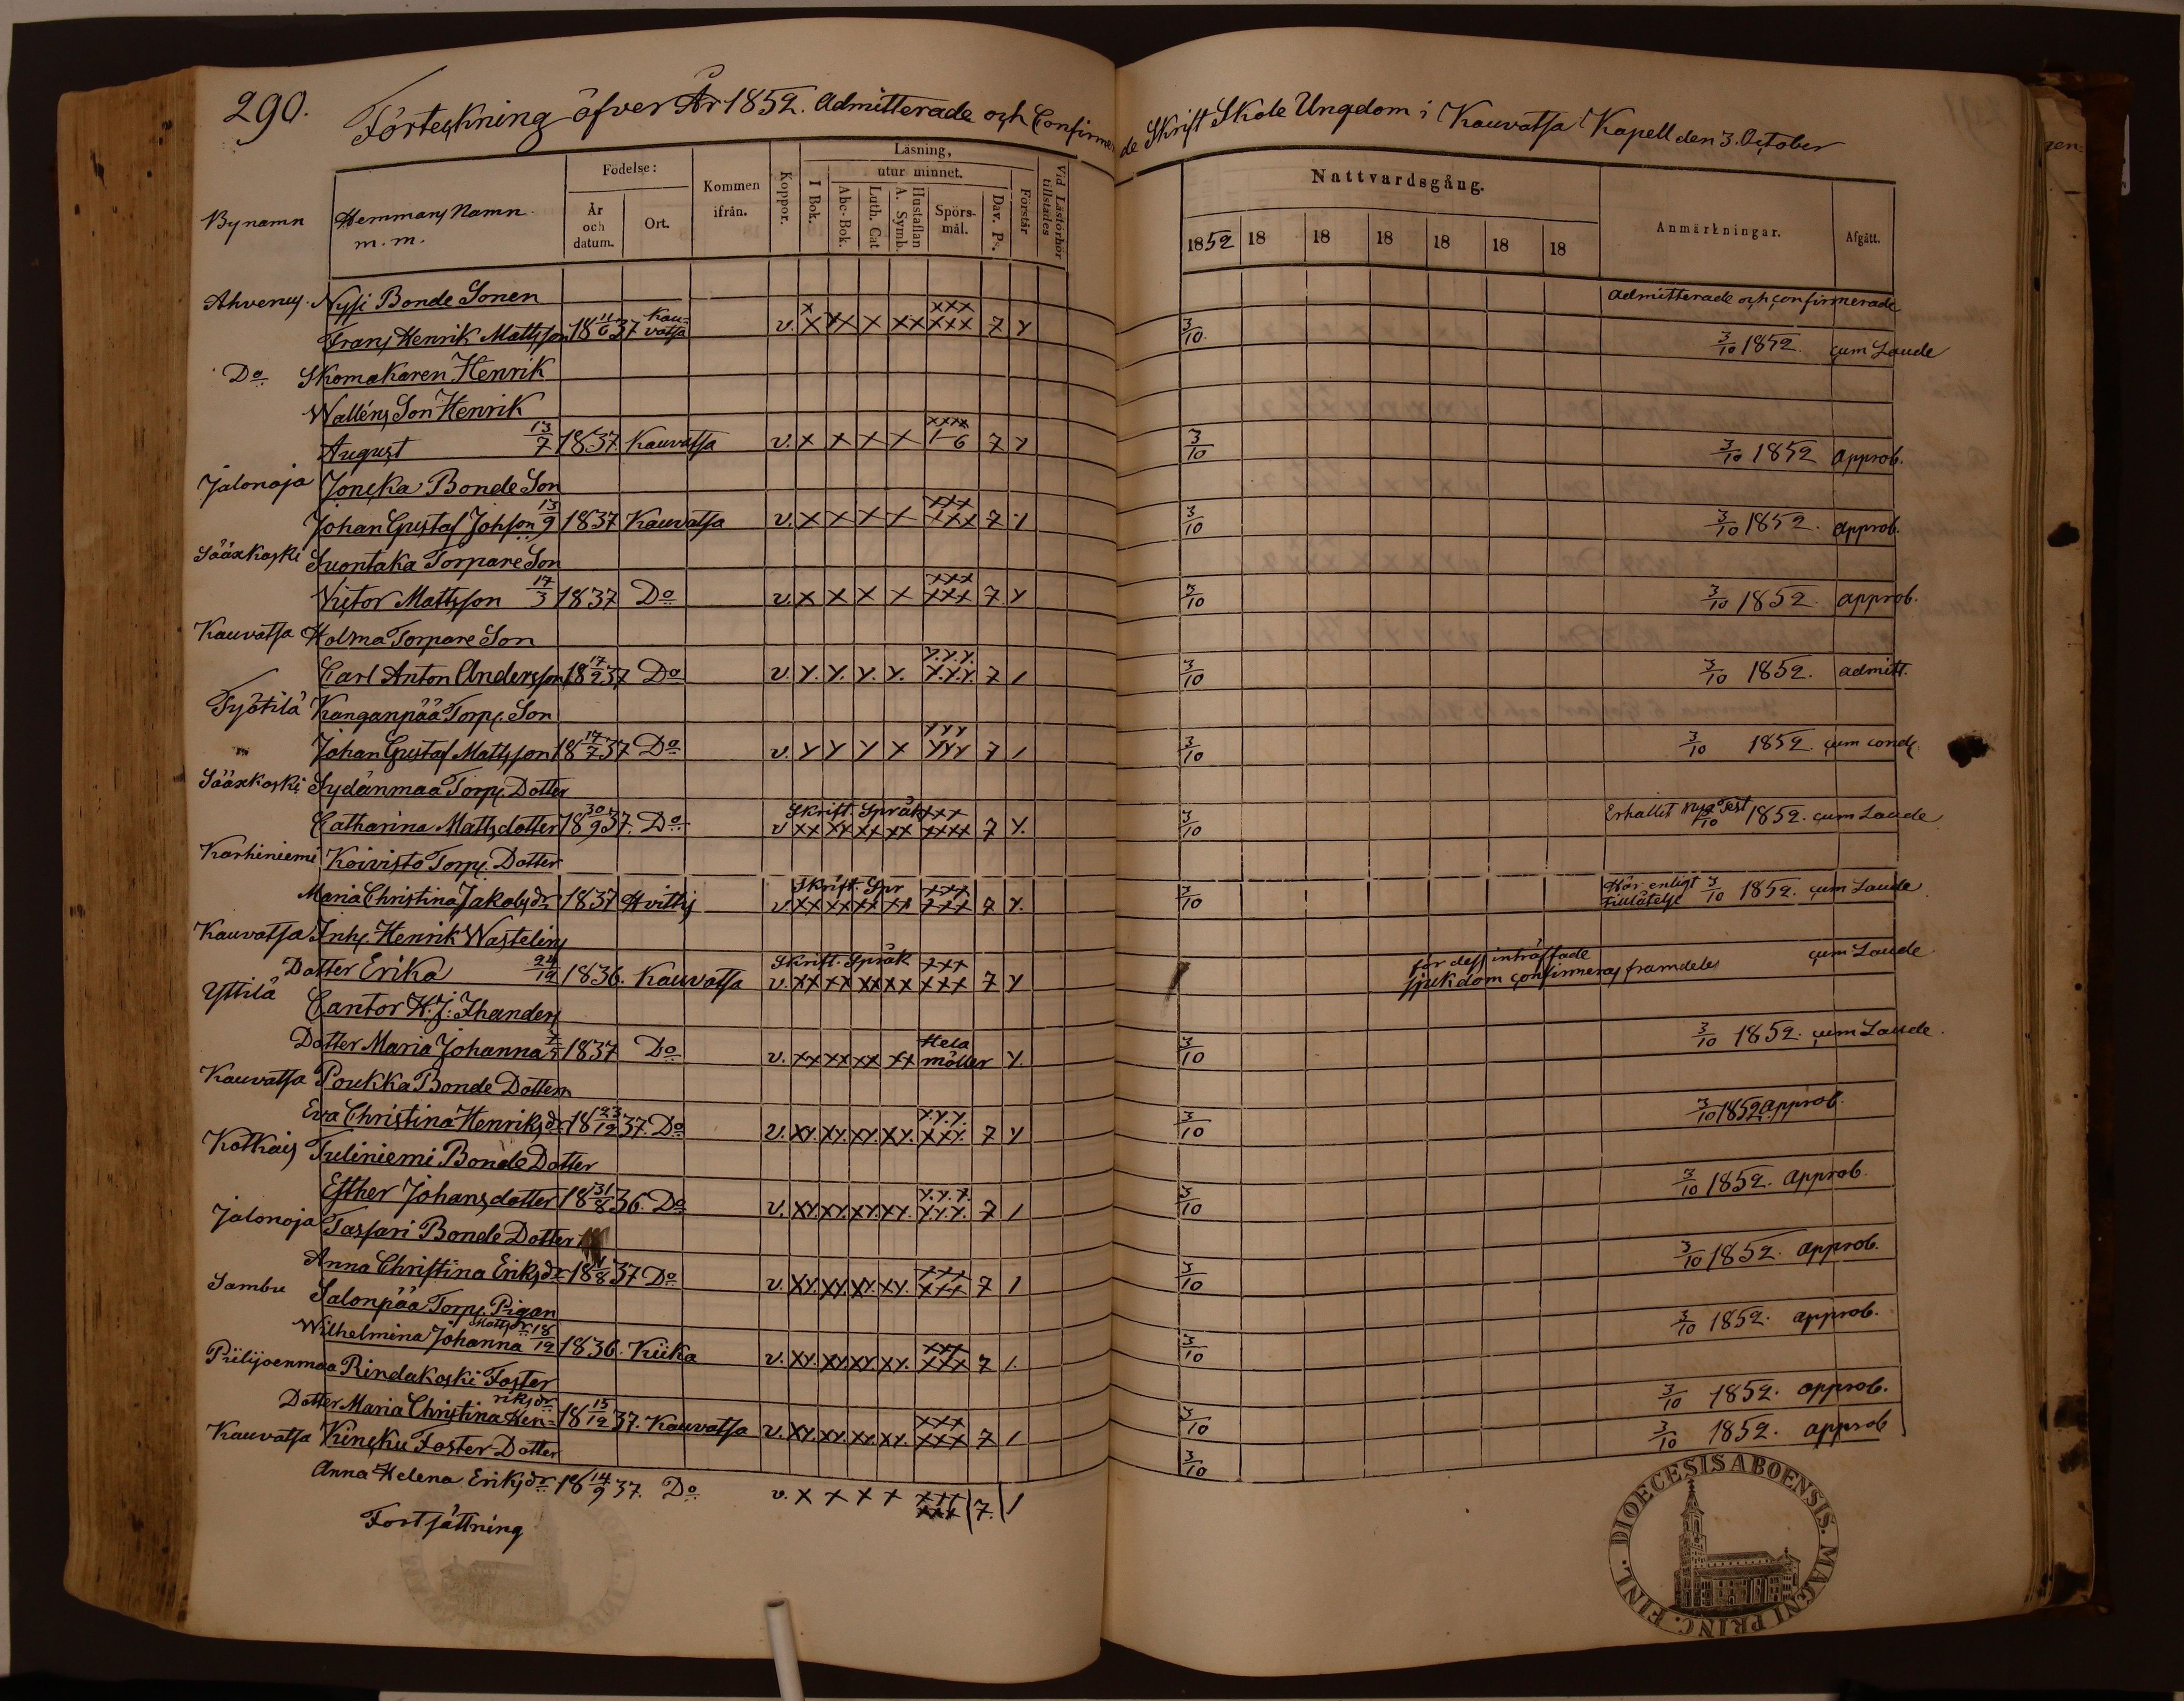 290.
Förteckning öfver År 1852. Admitterade och Confirmerade Skrift Skole Ungdom i Kauvatsa Kapell den 3. October
Bynamn Hemmans Namn m.m. Födelse: År och datum. Ort. Kommen ifrån. Koppor. Läsning, I Bok. utur minnet. Abc-Bok. Luth. Cat. Hustaflan A. Symb. Spörs-mål. Dav. Ps. Förstår Vid Läsförhör tillstädes Nattvardsgång. 1852 18 18 18 18 18 18 Anmärkningar. Afgått.
Ahvenus. Nyssi Bonde Sonen Admitterade och confirmerade
Frans Henrik Mattsson 18 11/6 37 Kauvatsa v. x x xx x xx xxx xxx 7 y 3/10. 3/10 1852. cum Laude
Do Skomakaren Henrik
Walléns Son Henrik
August 13/7 1837. Kauvatsa v. x x x x xxxx 1-6 7 y 3/10 3/10 1852 approb.
Jalonoja Joncka Bonde Son
Johan Gustaf Johsson 13/9 1837 Kauvatsa v. x x x x xxx xxx 7 y 3/10 3/10 1852. approb.
Sääxkoski Suontaka Torpare Son
Victor Mattsson 17/3 1837 Do v. x x x x xxx xxx 7 y 3/10 3/10 1852. approb.
Kauvatsa Holma Torpare Son
Carl Anton Andersson 18 17/2 37 Do v. y. y. y. y. y.y.y. y.y.y. 7 / 3/10 3/10 1852. admitt.
Työtilä Kanganpää Torp. Son
Johan Gustaf Mattsson 18 17/7 37 Do v. y y y x yyy yyy 7 / 3/10 3/10 1852. cum cond.
Sääxkoski Sydänmaa Torp. Dotter
Catharina Mattsdotter 18 30/9 37. Do Skrift. Språk xxx v xx xx xx xx xxxx 7 y. 3/10 Erhållit Nya Test 3/10 1852. cum Laude
Karhiniemi Koivisto Torp. Dotter
Maria Christina Jakobsdr 1837 Hvittis Skrift. Spr xxx v xx xx xx xx xxx 7 y. 3/10 Här enligt tillåtelse 3/10 1852. cum Laude.
Kauvatsa Inh. Henrik Wastelins
Dotter Erika 24/12 1836. Kauvatsa Skrift. Språk xxx v. xx xx xx xx xxx 7 y för dess inträffade sjukdom confirmeras framdeles cum Laude
Yttilä Cantor H. J: Thanders
Dotter Maria Johanna 1837 Do v. xx xx xx xx Hela möller y. 3/10 3/10 1852. cum Laude.
Kauvatsa Poukka Bonde Dottern
Eva Christina Henriksdr 18 23/12 37. Do v. xy. xy. xy. xy. y.y.y. xxy. 7 y 3/10 3/10 1852 approb.
Kotkais Tuliniemi Bonde Dotter
Esther Johansdotter 18 31/8 36. Do v. xy. xy. xy. xy. y.y.y. y.y.y. 7 / 3/10 3/10 1852. approb.
Jalonoja Tassari Bonde Dotter
Anna Christina Eriksdr 18 1/8 37 Do v. xy. xy. xy. xy. xxx xxx 7 / 3/10 3/10 1852. approb.
Sambu Salonpää Torp. Pigan
Wilhelmina Johanna Mattsdr 18/12 1836. Kiika v. xy. xy. xy. xy. xxx xxx 7 / 3/10 3/10 1852. approb.
Piilijoenmaa Rindakoski Foster
Dotter Maria Christina Henriksdr 18 15/12 37. Kauvatsa v. xy. xy. xy. xy. xxx xxx 7 / 3/10 3/10 1852. approb.
Kauvatsa Kincku Foster Dotter
Anna Helena Eriksdr 18 14/9 37. Do v. x x x x xxx xxx 7. / 3/10 3/10 1852. approb
Fortsättning
DIOECESIS ABOENSIS. MAGNI PRINC. FINL.